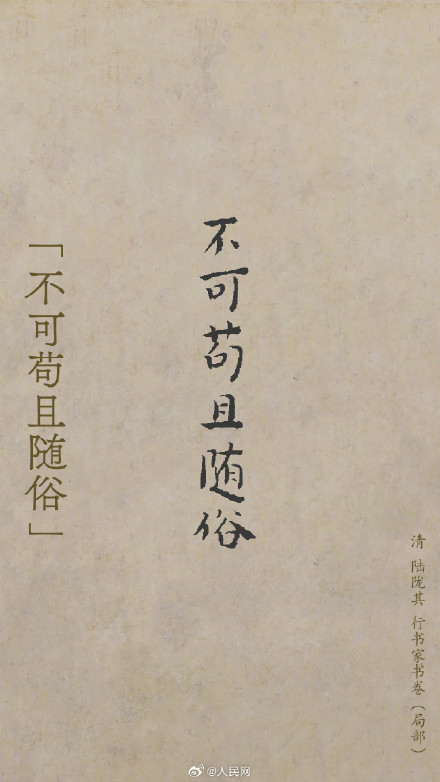 「不可苟且随俗」
不可苟且随俗
清 陆陇其 行书家书卷（局部）
@人民网